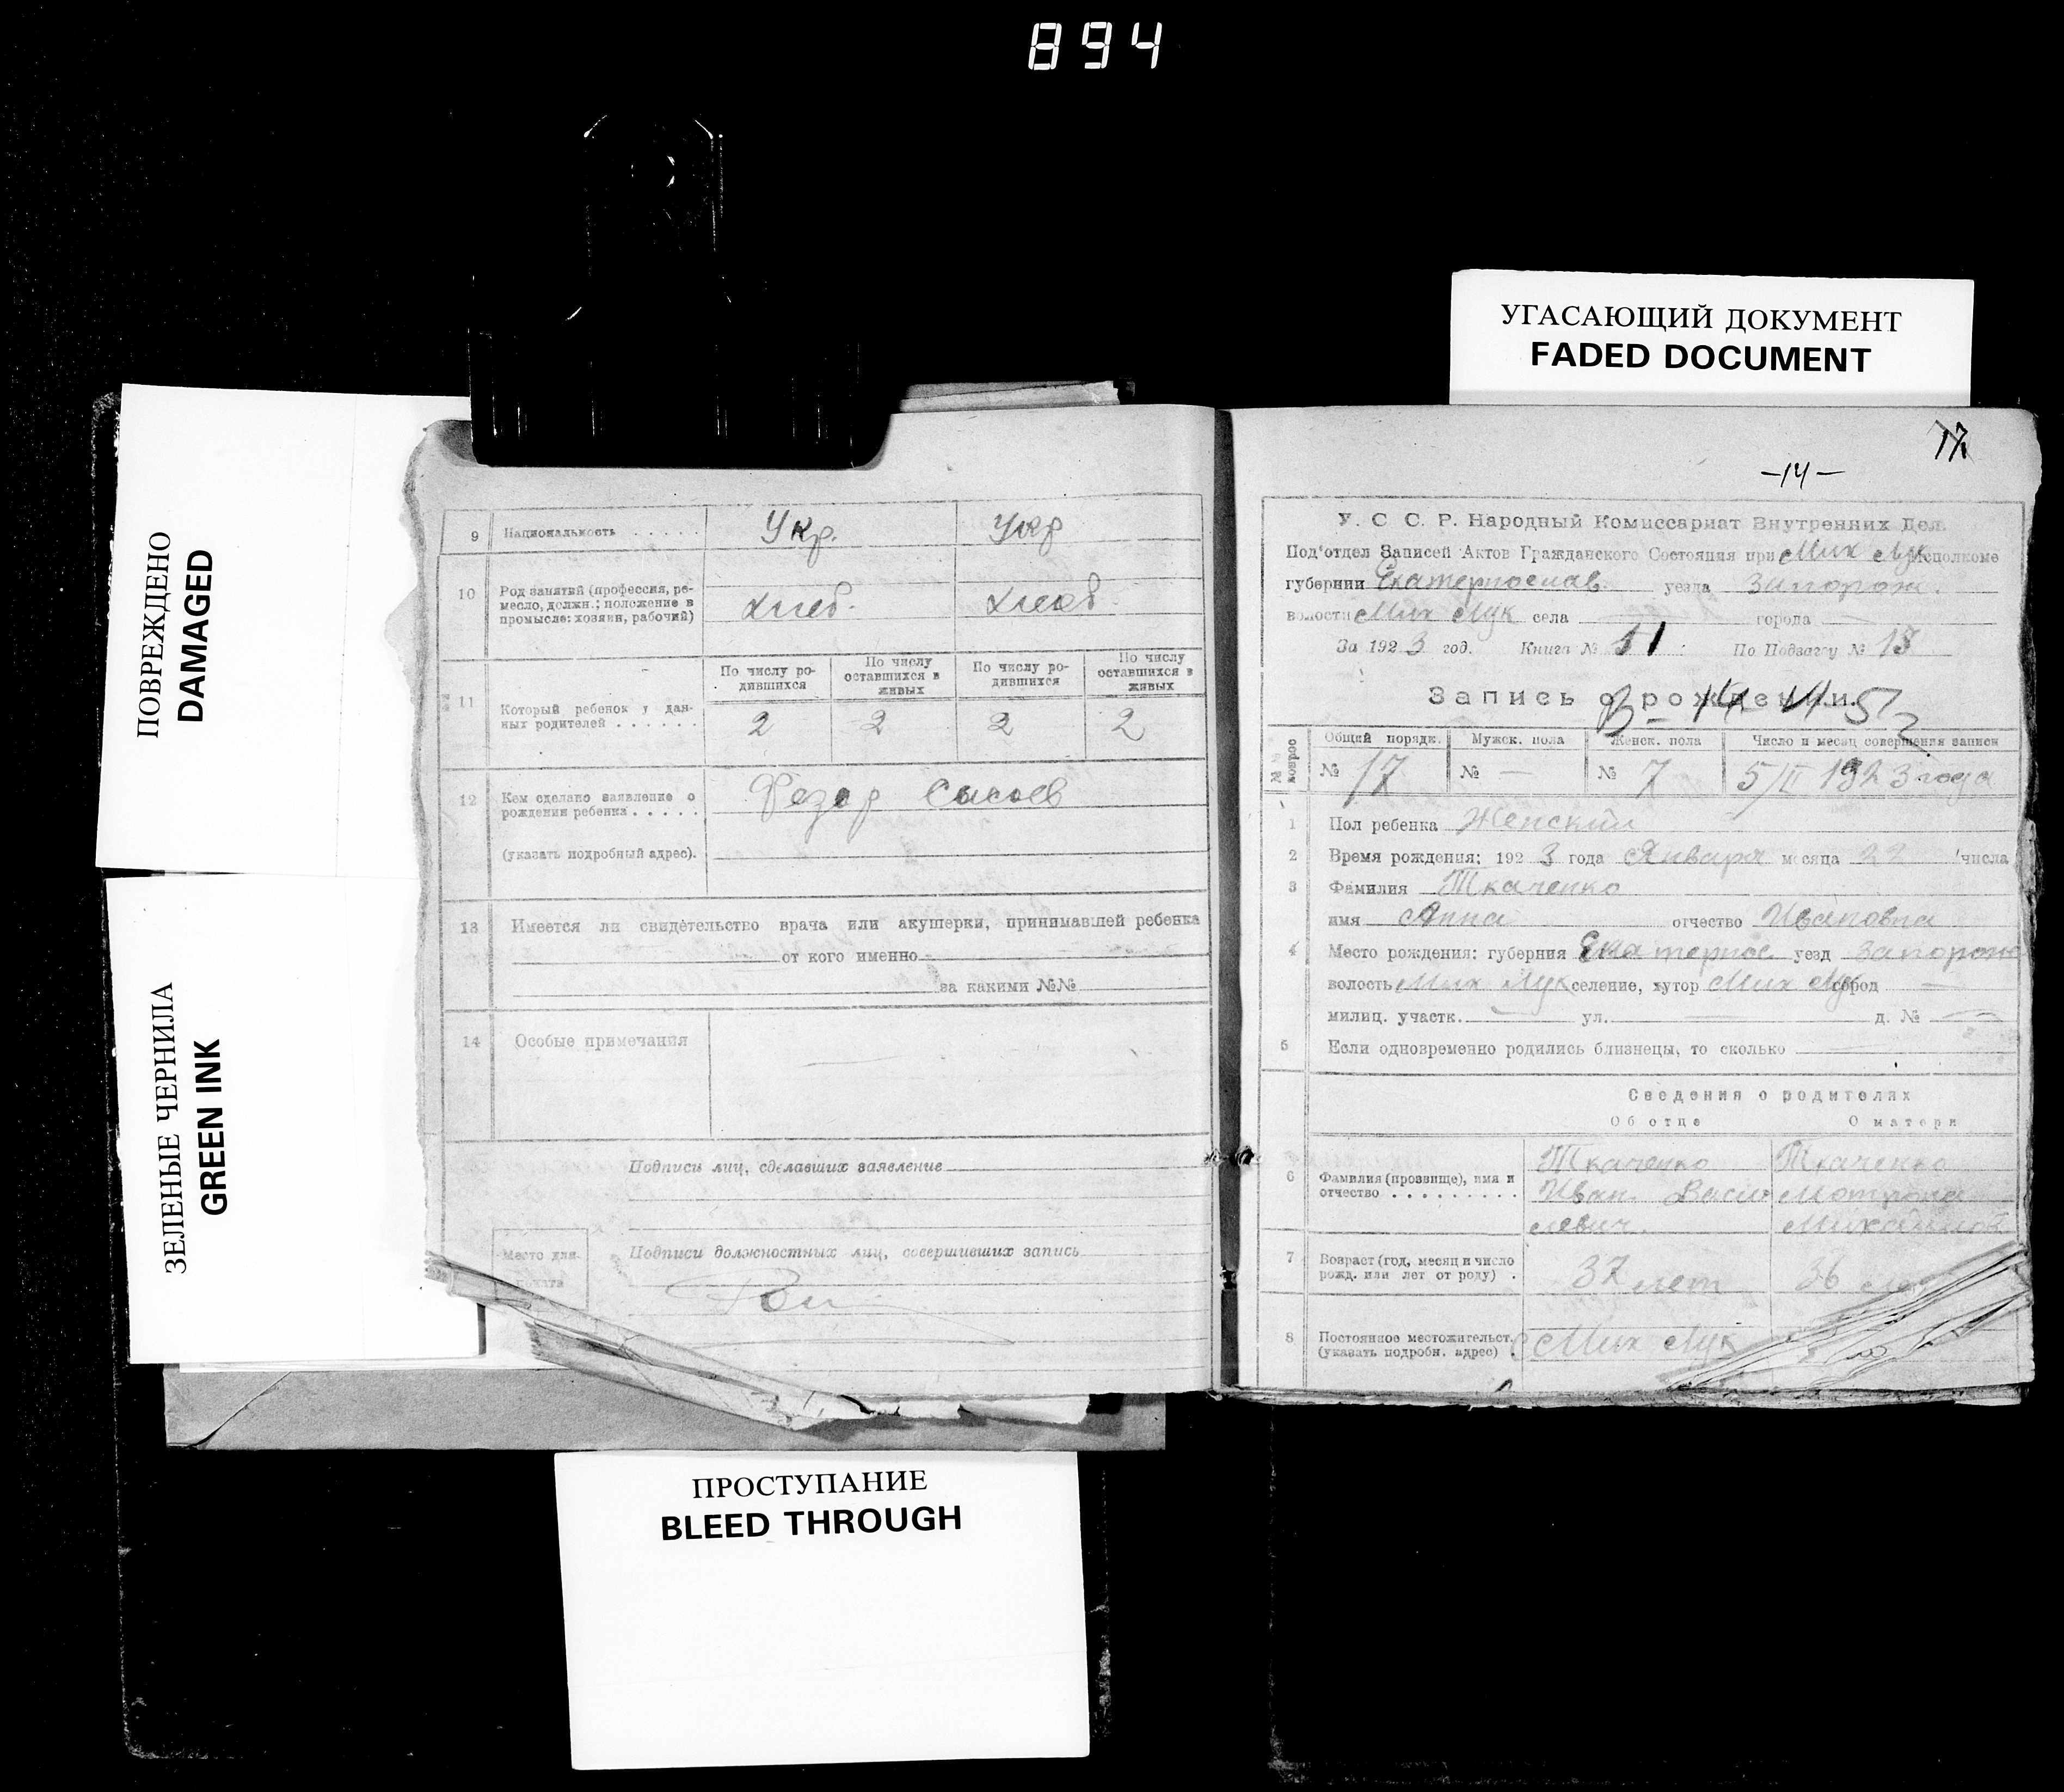 894
УГАСАЮЩИЙ ДОКУМЕНТ
FADED DOCUMENT
ПОВРЕЖДЕНО
DAMAGED
ЗЕЛЕНЫЕ ЧЕРНИЛА
GREEN INK
9 Национальность . . . . . Укр. Укр
10 Род занятий (профессия, ре-
месло, должн.; положение в
промысле: хозяин, рабочий) хлеб. хлеб.
По числу ро-
дившихся
По числу
оставшихся в
живых
По числу ро-
дившихся
По числу
оставшихся в
живых
11 Который ребенок у дан-
ных родителей . . . . . . 2 2 2 2
12 Кем сделано заявление о
рождении ребенка . . . . . Федор Сысоев
(указать подробный адрес).
13 Имеется ли свидетельство врача или акушерки, принимавшей ребенка
от кого именно
за какими №№
14 Особые примечания
Подписи лиц, сделавших заявление
Место для
печати
Подписи должностных лиц, совершивших запись
-14-
У. С С. Р. Народный Комиссариат Внутренних Дел.
Под'отдел Записей Актов Гражданского Состояния при Мих Лук Исполкоме
губернии Екатеринослав. уезда Запорож.
волости Мих Лук села города
За 1923 год. Книга № 11 : По Подзагсу № 13
Запись о рождении.
№№ вопрос
Общий порядк. Мужск. пола Женск. пола Число и месяц совершения записи
№ 17 № — № 7 5/II 1923 года
1 Пол ребенка Женский
2 Время рождения: 1923 года Января месяца 22 числа
3 Фамилия Ткаченко
имя Анна отчество Ивановна
4 Место рождения: губерния Екатеринос. уезд Запорож
волость Мих Лук селение, хутор Мих Лук город —
милиц. участк. ул. д. №
5 Если одновременно родились близнецы, то сколько
Сведения о родителях
Об отце О матери
6 Фамилия (прозвище), имя и
отчество . . . . . . . . .
Ткаченко
Иван Васи
левич.
Ткаченко
Мотрона
Михайлов.
7 Возраст (год, месяц и число
рожд. или лет от роду) . 37 лет 36 лет
8 Постоянное местожительст.
(указать подробн. адрес) . Мих Лук
ПРОСТУПАНИЕ
BLEED THROUGH